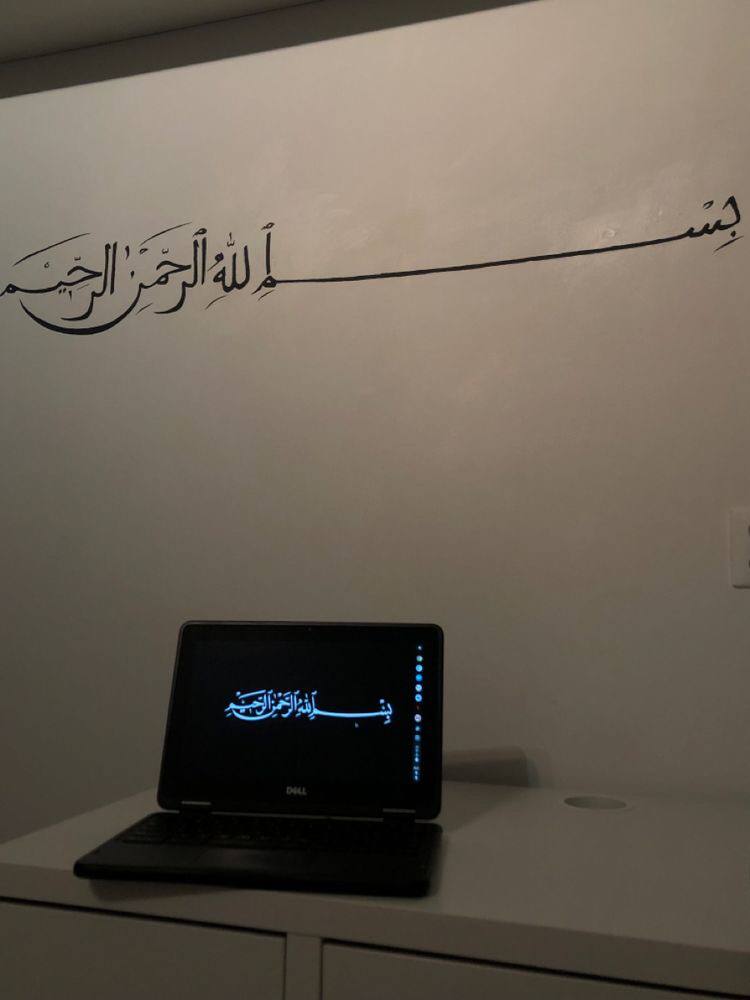 بِسْمِ اللهِ الرَّحْمٰنِ الرَّحِيْمِ
بِسْمِ اللهِ الرَّحْمٰنِ الرَّحِيْمِ
DELL